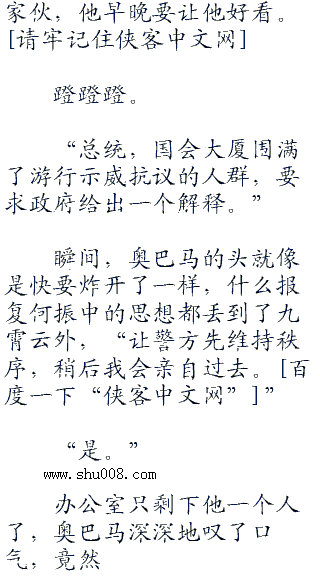 家伙，他早晚要让他好看。
[请牢记住侠客中文网]
蹬蹬蹬。
“总统，国会大厦围满
了游行示威抗议的人群，要
求政府给出一个解释。”
瞬间，奥巴马的头就像
是快要炸开了一样，什么报
复何振中的思想都丢到了九
霄云外，“让警方先维持秩
序，稍后我会亲自过去。[百
度一下“侠客中文网”]”
“是。”
www.shu008.com
办公室只剩下他一个人
了，奥巴马深深地叹了口
气，竟然